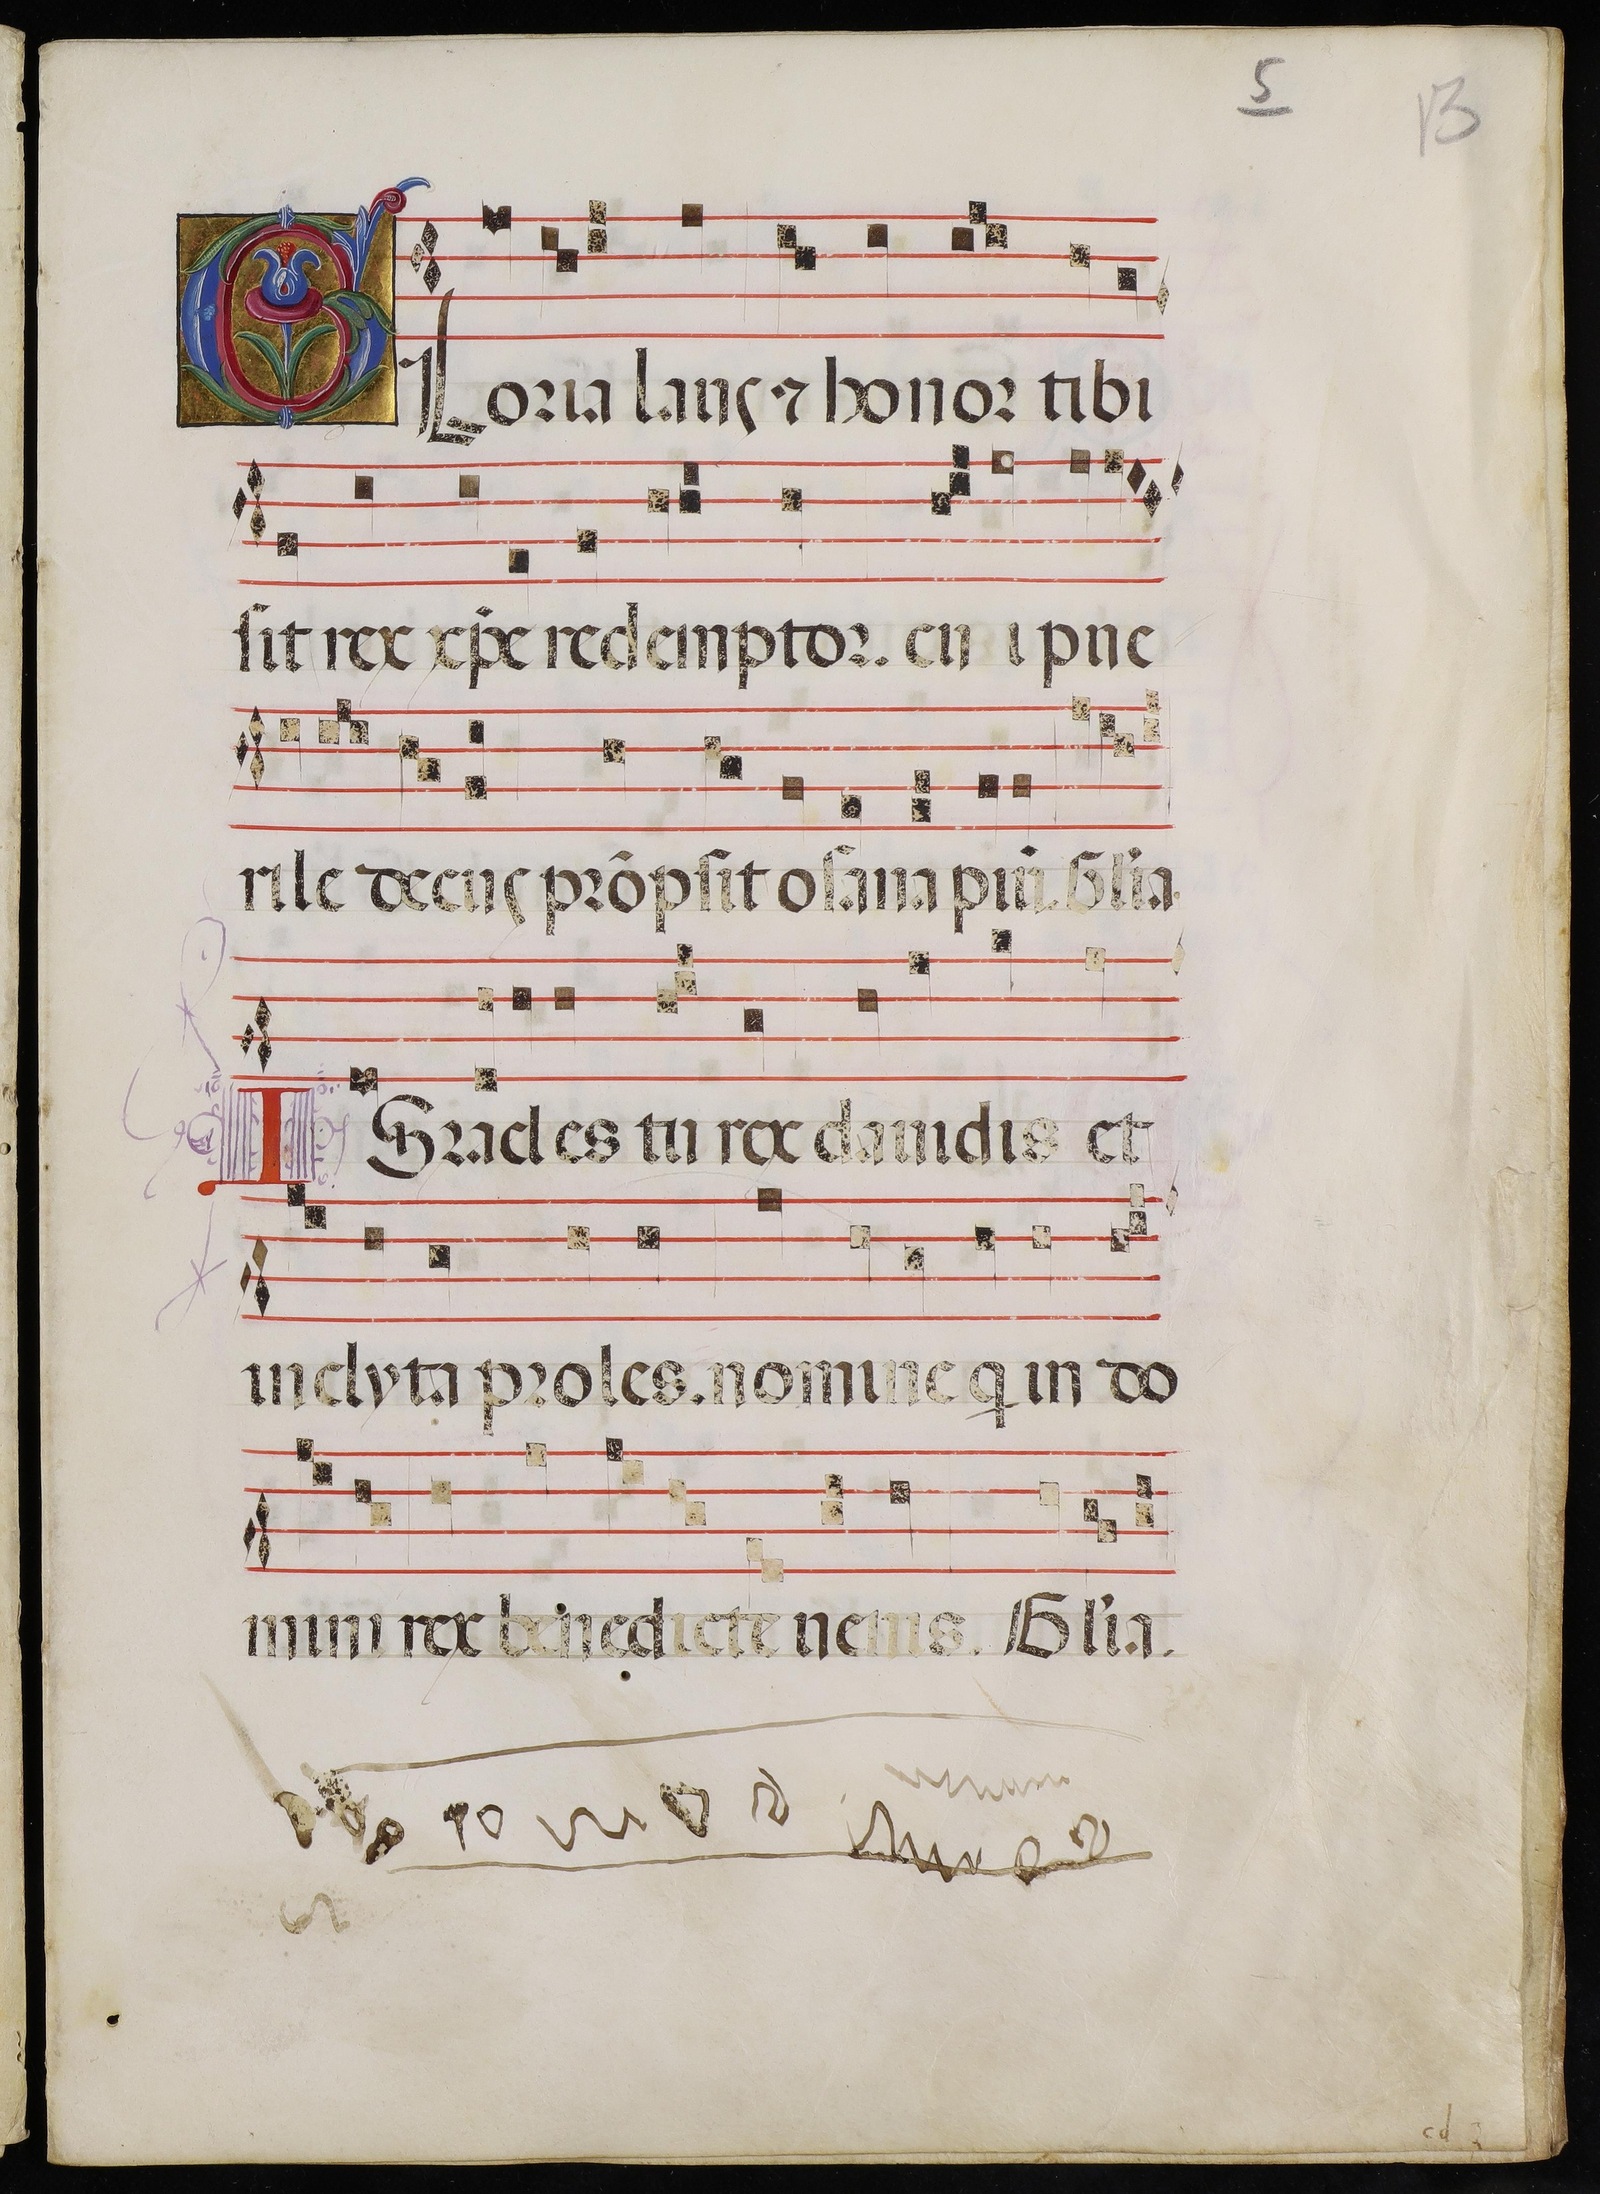 5
13
Gloria laus ⁊ honor tibi
sit rex xp̄e redemptor. cui ı pue
rile decus prōpsit osanna piū. Glia
ISrael es tu rex dauidis et
inclyta proles. nomine q in do
mini rex benedicte uenis. Glia.
cd 3